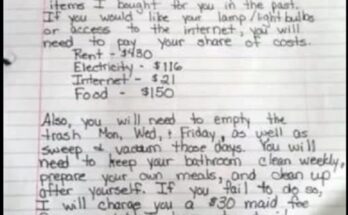 items I bought for you in the past.
If you would like your lamp/lightbulbs
or access to the internet, you will
need to pay your share of costs.
Rent - $430
Electricity - $116
Internet - $21
Food - $150
Also, you will need to empty the
trash Mon, Wed, & Friday, as well as
sweep & vacuum those days. You will
need to keep your bathroom clean weekly,
prepare your own meals, and clean up
after yourself. If you fail to do so,
I will charge you a $30 maid fee